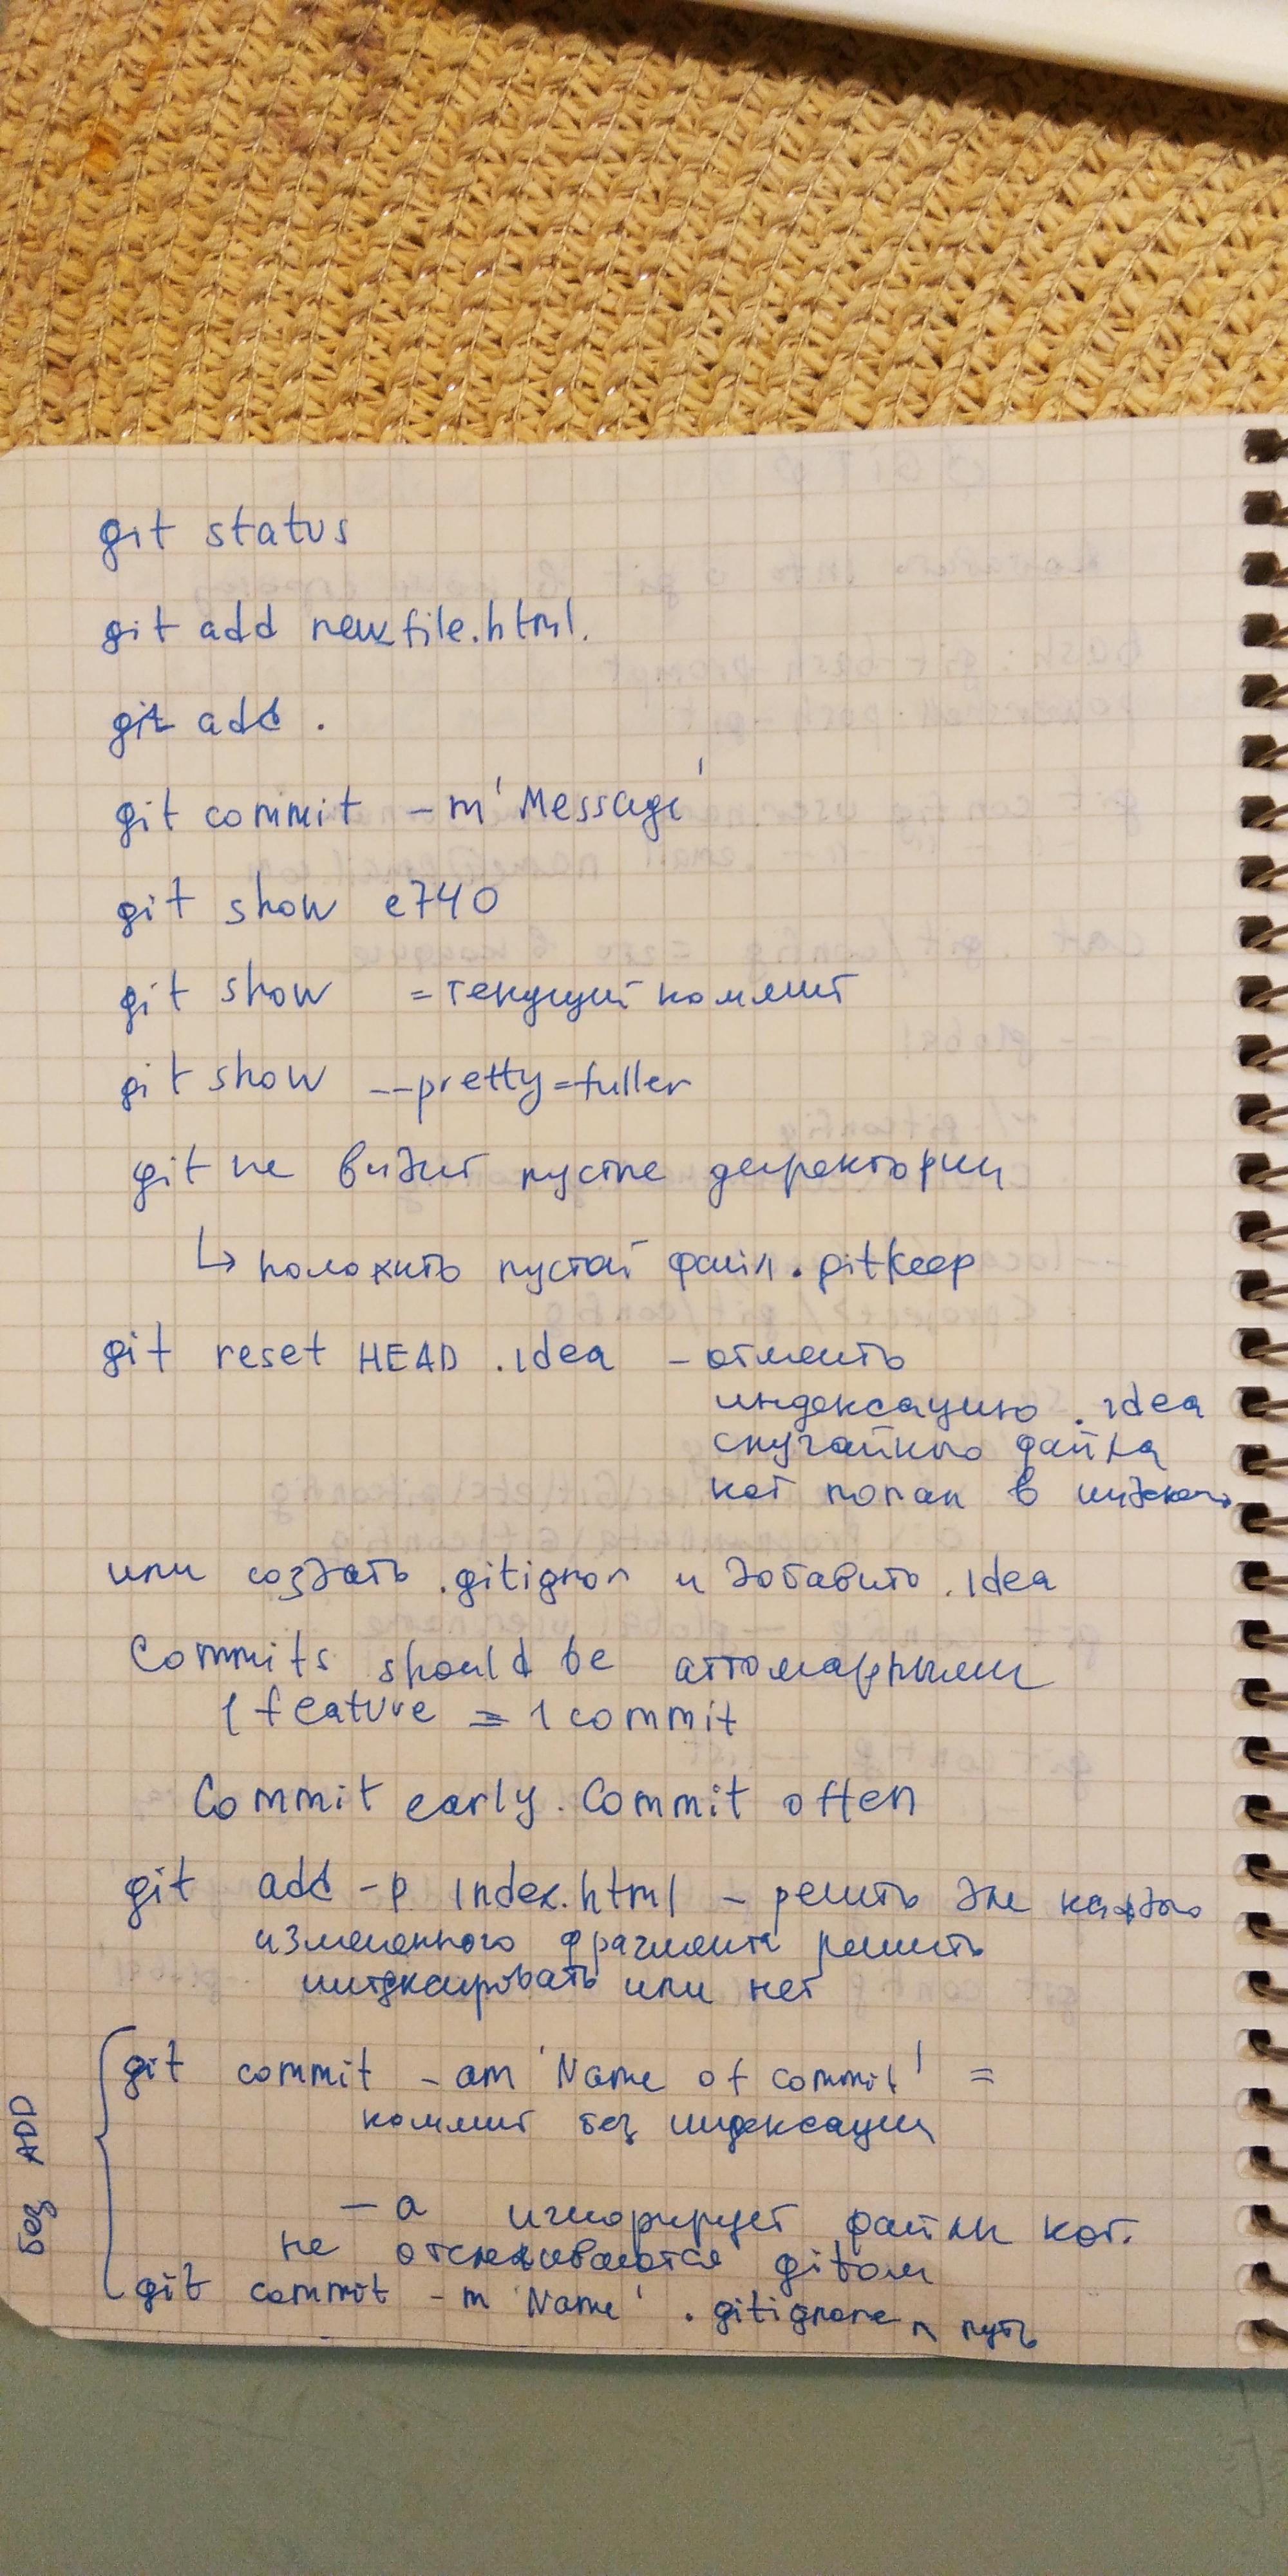 git status
git add newfile.html.
git add .
git commit -m 'Message'
git show e740
git show = текущий коммит
git show --pretty=fuller
git не видит пустые директории
↳ положить пустой файл .gitkeep
git reset HEAD .idea - отменить
индексацию .idea
случайного файла
кот попал в индекс
или создать .gitignor и добавить .idea
Commits should be аттомарными
1 feature = 1 commit
Commit early. Commit often
git add -p index.html - решить для каждого
измененного фрагмента решить
индексировать или нет
без ADD
git commit -am 'Name of commit' =
коммит без индексации
-a игнорирует файлы кот.
не отслеживаются gitом
git commit -m 'Name' .gitignore путь